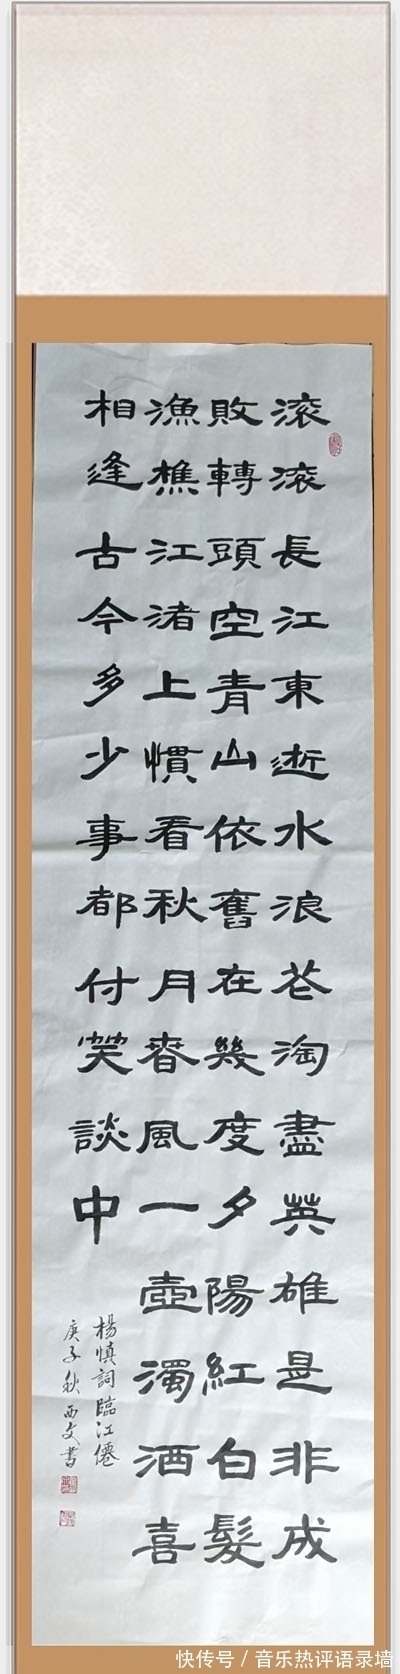 滚滚長江東逝水浪花淘盡英雄是非成
敗轉頭空青山依舊在幾度夕陽紅白髮
漁樵江渚上慣看秋月春風一壺濁酒喜
相逢古今多少事都付笑談中
楊慎詞臨江僊
庚子秋西文書
快传号 / 音乐热评语录墙